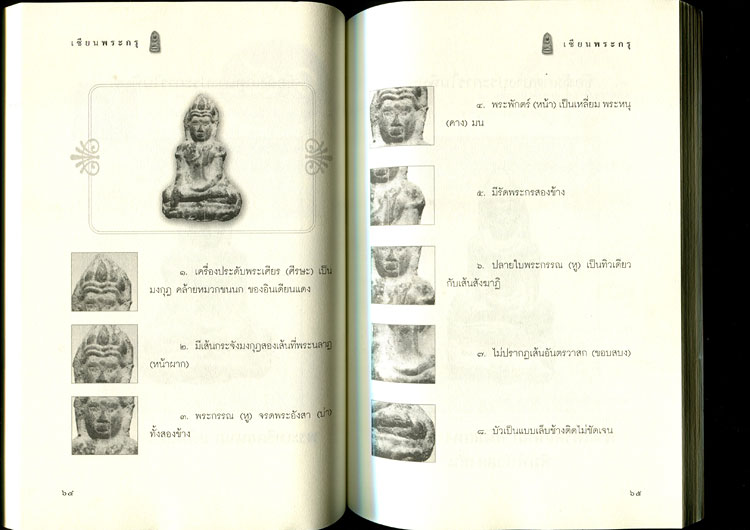 เซียนพระกรุ
๑. เครื่องประดับพระเศียร (ศีรษะ) เป็น
มงกุฎ คล้ายหมวกขนนก ของอินเดียนแดง
๒. มีเส้นกระจังมงกุฎสองเส้นที่พระนลาฏ
(หน้าผาก)
๓. พระกรรณ (หู) จรดพระอังสา (บ่า)
ทั้งสองข้าง
๖๔
เซียนพระกรุ
๔. พระพักตร์ (หน้า) เป็นเหลี่ยม พระหนุ
(คาง) มน
๕. มีรัดพระกรสองข้าง
๖. ปลายใบพระกรรณ (หู) เป็นทิวเดียว
กับเส้นสังฆาฏิ
๗. ไม่ปรากฏเส้นอันตรวาสก (ขอบสบง)
๘. บัวเป็นแบบเล็บช้างติดไม่ชัดเจน
๖๕